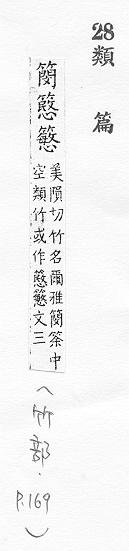 28
類篇
簢
美隕切竹名爾雅簢筡中
空類竹或作文三
(竹部.
P.169)